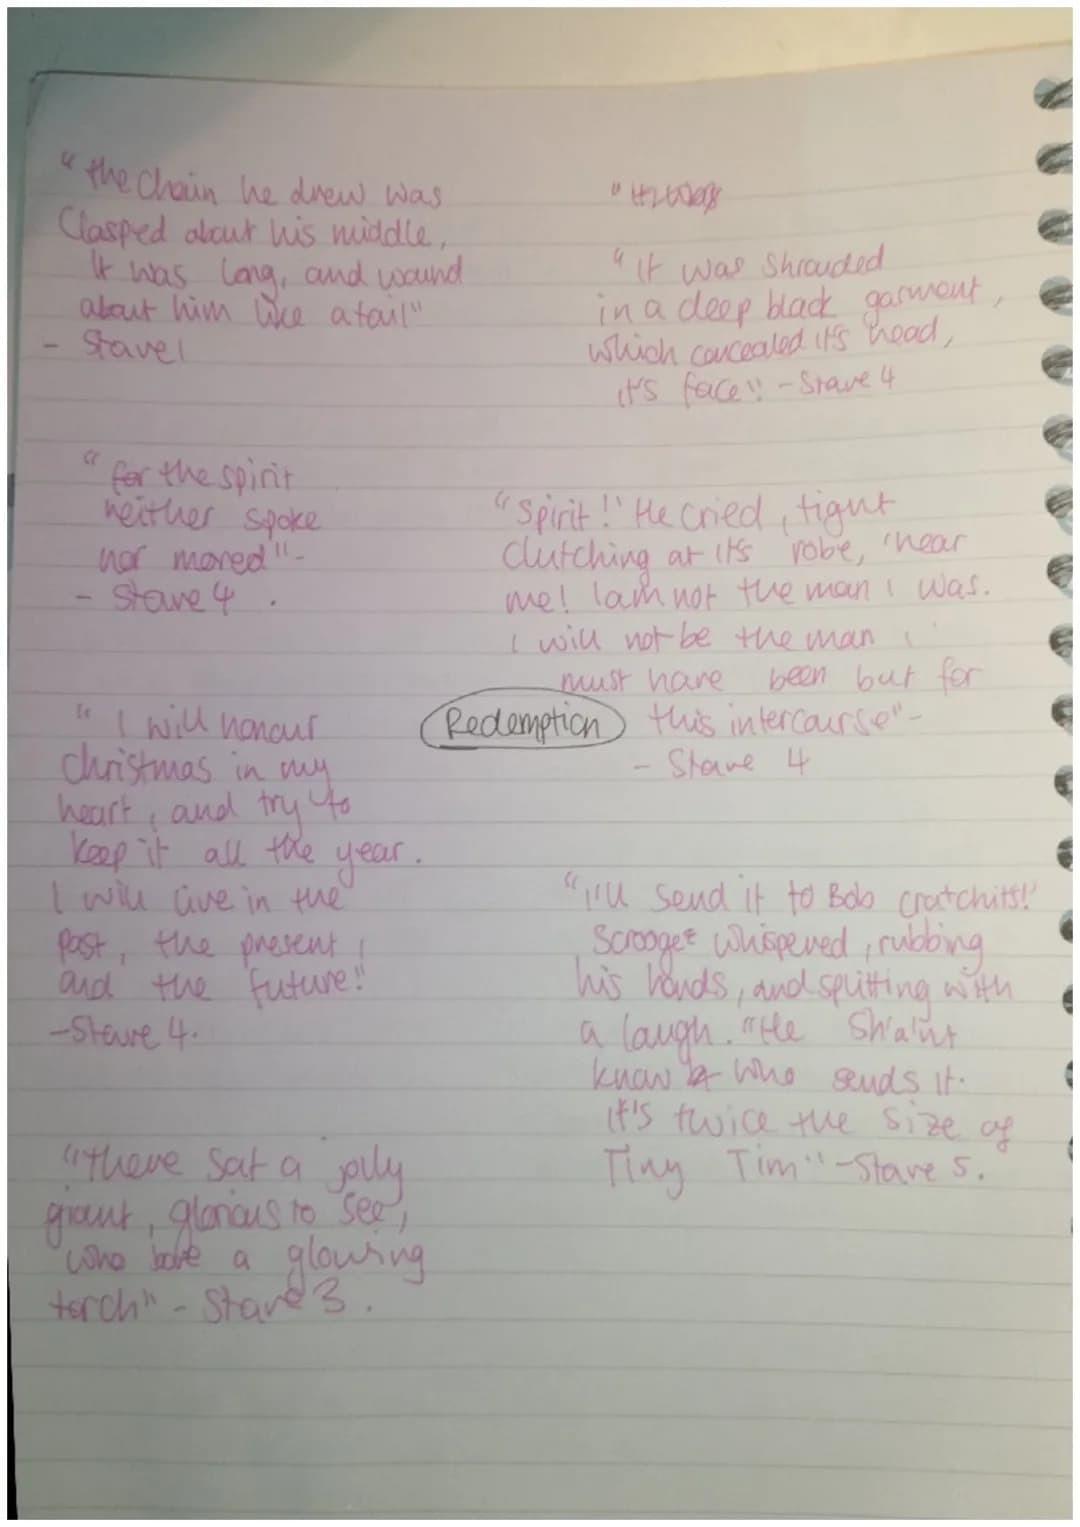 "the Chain he drew was
Clasped about his middle,
It was long, and wound
about him like a tail"
- Stave 1
"It was Shrouded
in a deep black garment,
which concealed it's head,
it's face" - Stave 4
"for the spirit
neither spoke
nor moved" -
- Stave 4.
"Spirit!' He cried, tight
Clutching at it's robe, 'hear
me! I am not the man I was.
I will not be the man I
must have been but for
this intercourse" -
- Stave 4
Redemption
"I will honour
Christmas in my
heart, and try to
keep it all the year.
I will live in the
past, the present,
and the future!"
- Stave 4.
"I'll Send it to Bob Cratchits!'
Scrooge whispered, rubbing
his hands, and splitting with
a laugh. "He Sha'nt
know who sends it.
It's twice the size of
Tiny Tim" - Stave 5.
"there Sat a jolly
giant, glorious to see,
who bore a glowing
torch" - Stave 3.